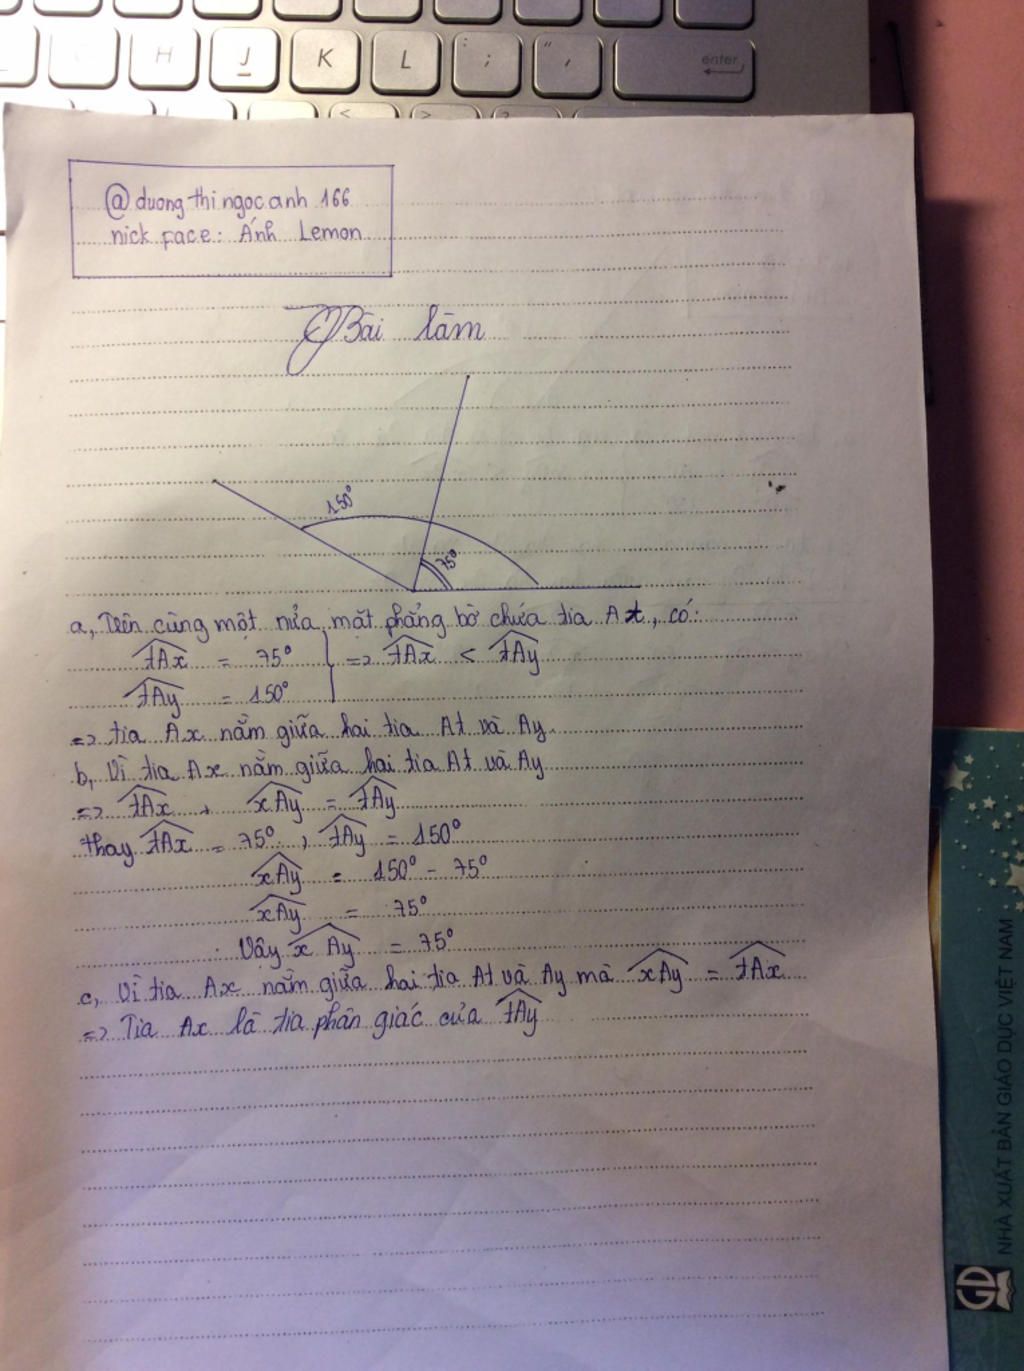 H
J
K
L
:
;
"
,
enter
<
>
?
@ duongthingocanh 166
nick face: Ánh Lemon
Bài làm
150°
75°
a, Trên cùng một nửa mặt phẳng bờ chứa tia At, có:
tAx = 75° => tAx < tAy
tAy = 150°
=> tia Ax nằm giữa hai tia At và Ay.
b, Vì tia Ax nằm giữa hai tia At và Ay
=> tAx + xAy = tAy
thay tAx = 75°, tAy = 150°
xAy = 150° - 75°
xAy = 75°
Vậy xAy = 75°
c, Vì tia Ax nằm giữa hai tia At và Ay mà xAy = tAx
=> Tia Ax là tia phân giác của tAy
NHÀ XUẤT BẢN GIÁO DỤC VIỆT NAM
GD